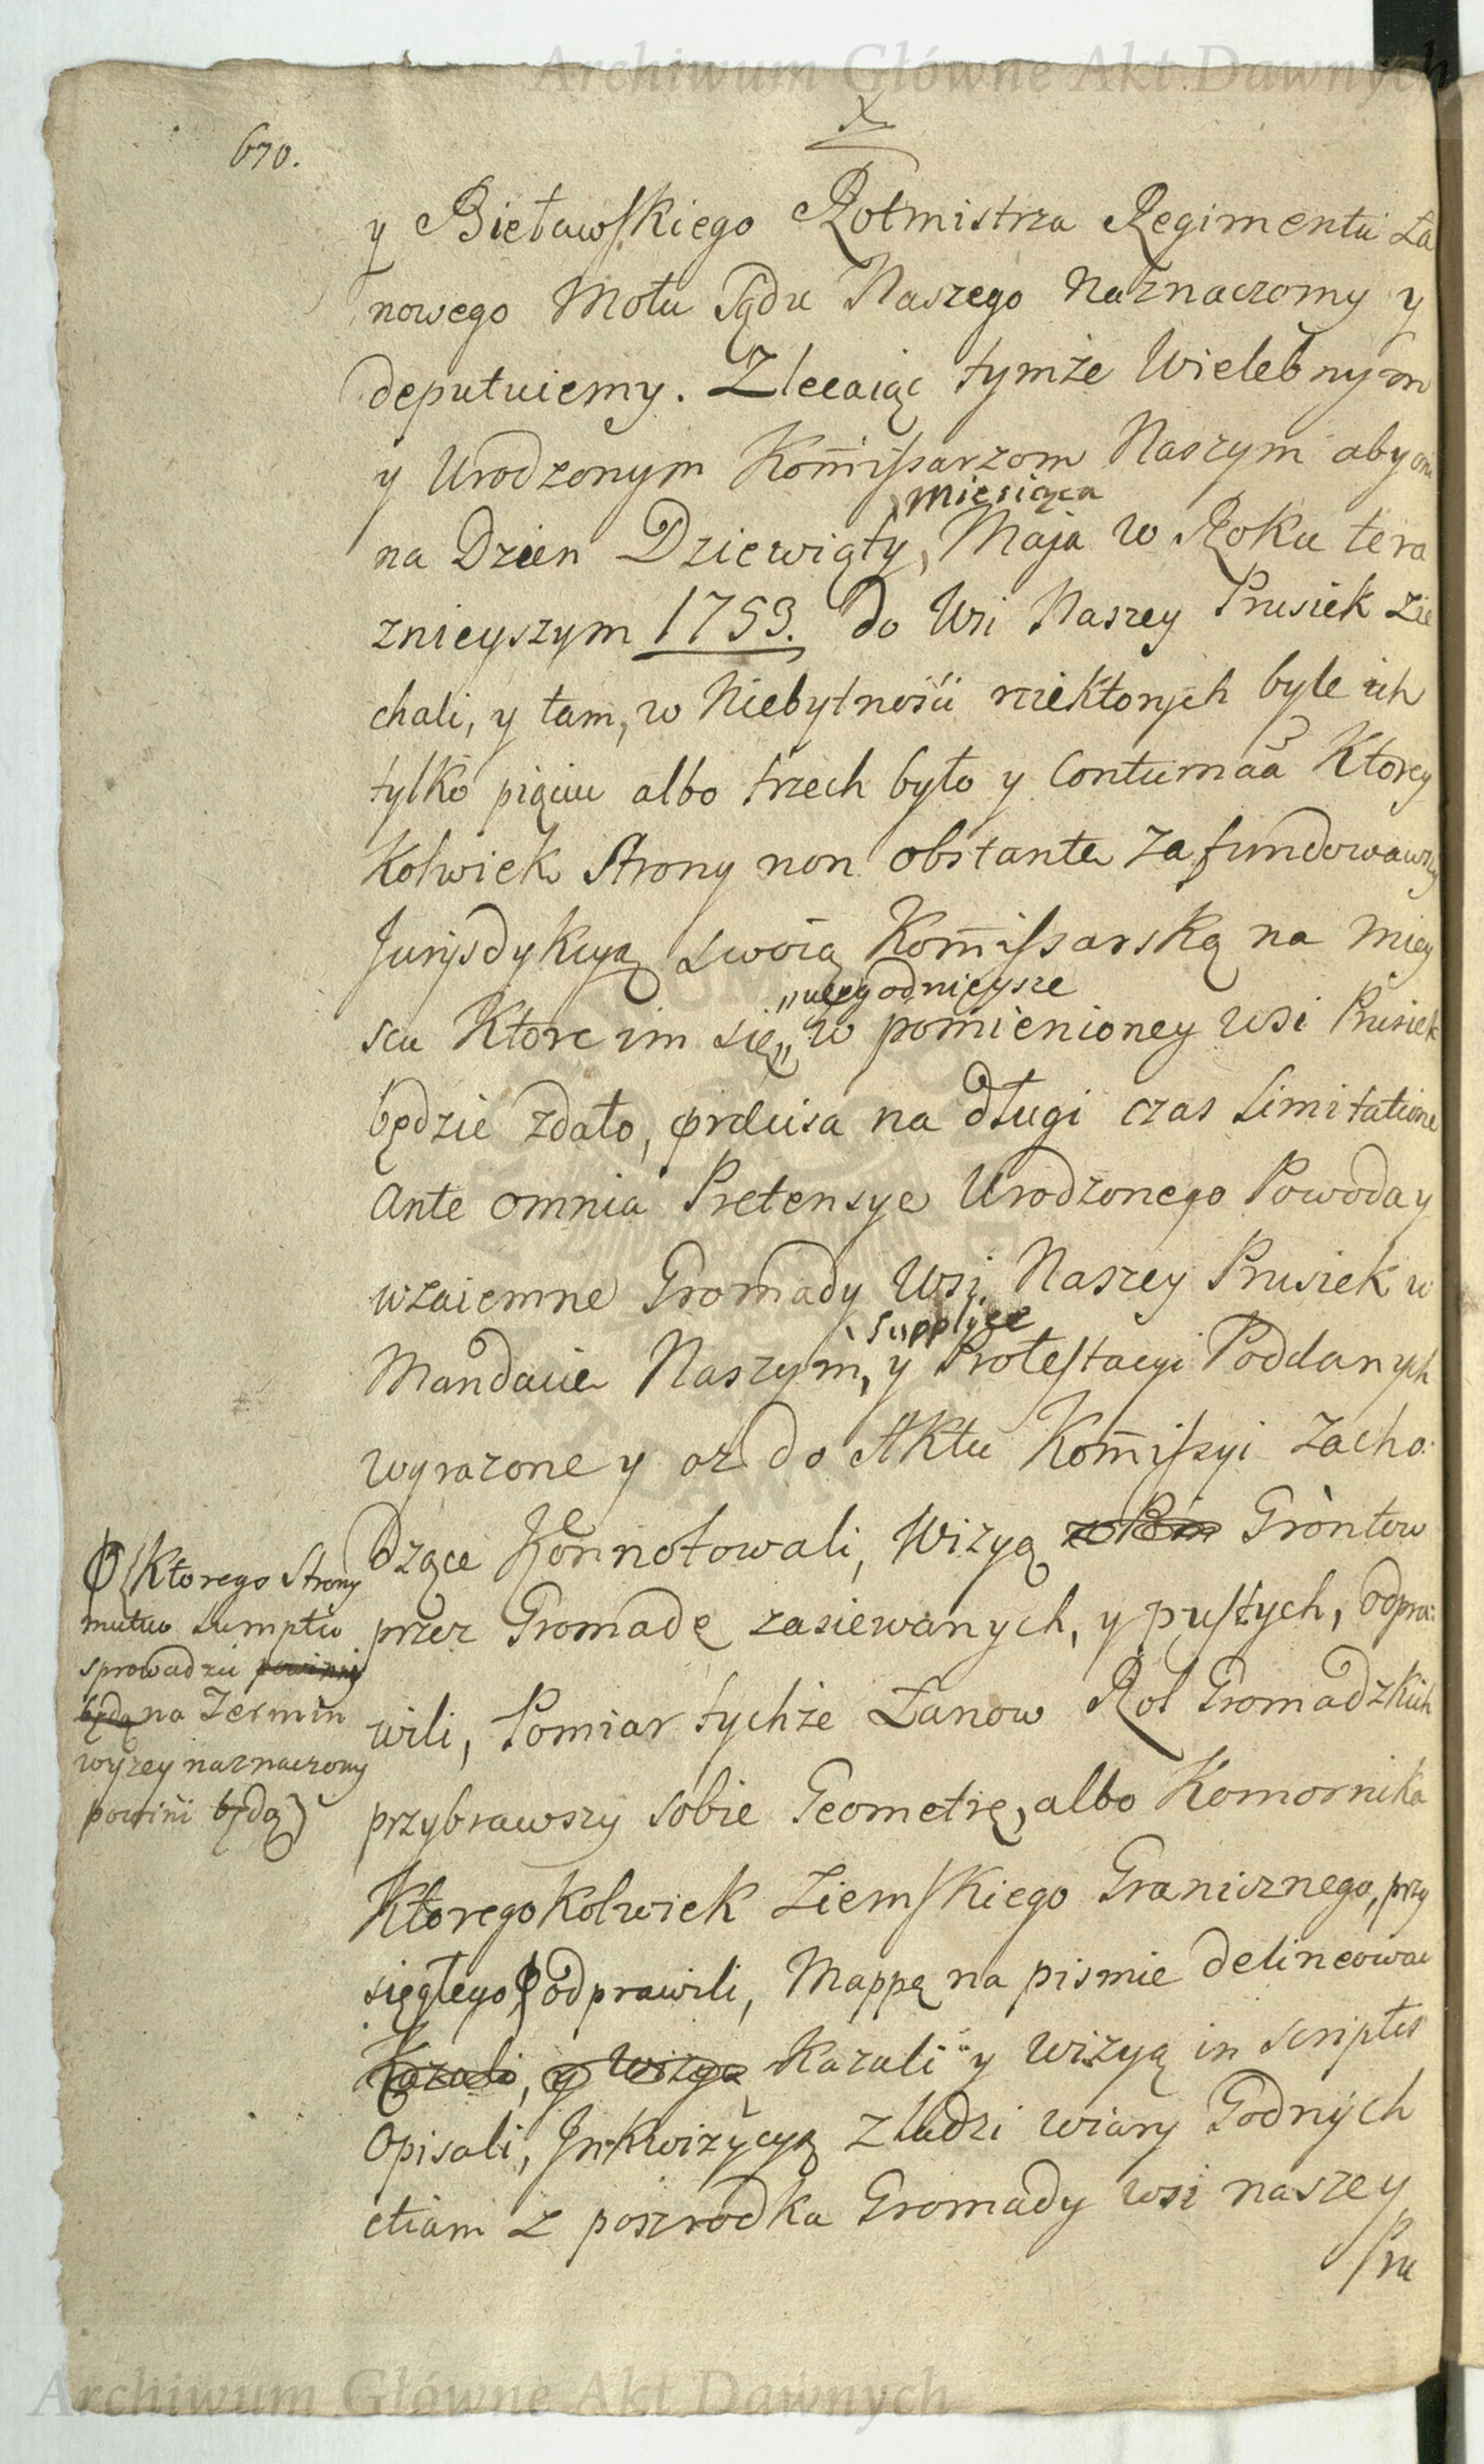 Archiwum Główne Akt Dawnych
X
670.
y Bieławskiego Rotmistrza Regimentu Ła
nowego Motu Sądu Naszego naznaczomy y
deputuiemy. Zlecaiąc tymże Wielebnym
y Urodzonym Kom̄issarzom Naszym aby oni
miesiąca
na Dzien Dziewiąty, Maja w Roku tera
znieyszym 1753. do Wsi Naszey Prusiek zie
chali, y tam, w Niebytnosci niektorych byle ich
tylko pięciu albo trzech było y Contumacia Ktorey
Kolwiek Strony non obstante zafundowawszy
Jurysdykcyą swoią Kom̄issarską na miey
„wygodnieysze
scu Ktore im się „ w pomienioney wsi Prusiek
będzie zdało, prӕcisa na długi czas Limitatione
Ante omnia Pretensye Urodzonego Powoda y
wzaiemne Gromady Wsi Naszey Prusiek w
supplyce
Mandacie Naszym, y Protestacyi Poddanych
wyrazone y az do Aktu Kom̄issyi zacho
dzące Konnotowali, Wizyą Gròntow
przez Gromadę zasiewanych, y pustych, odpra:
wili, Pomiar tychże Łanow Rol Gromadzkich
przybrawszy sobie Geometrę, albo Komornika
Ktoregokolwiek Ziemskiego Granicznego, przy
sięgłego ϕ odprawili, Mappę na pismie delineowac
Kazali, y Wizyą Kazali y wizyą in scriptis
Opisali, Inkwizycyą z ludzi wiary Godnych
etiam z poszrodka Gromady wsi naszey
Pru
ϕ (Ktorego Strony
mutuo sumptu
sprowadzic powinny
będą na Termin
wyzey naznaczony
powini będą)
Archiwum Główne Akt Dawnych